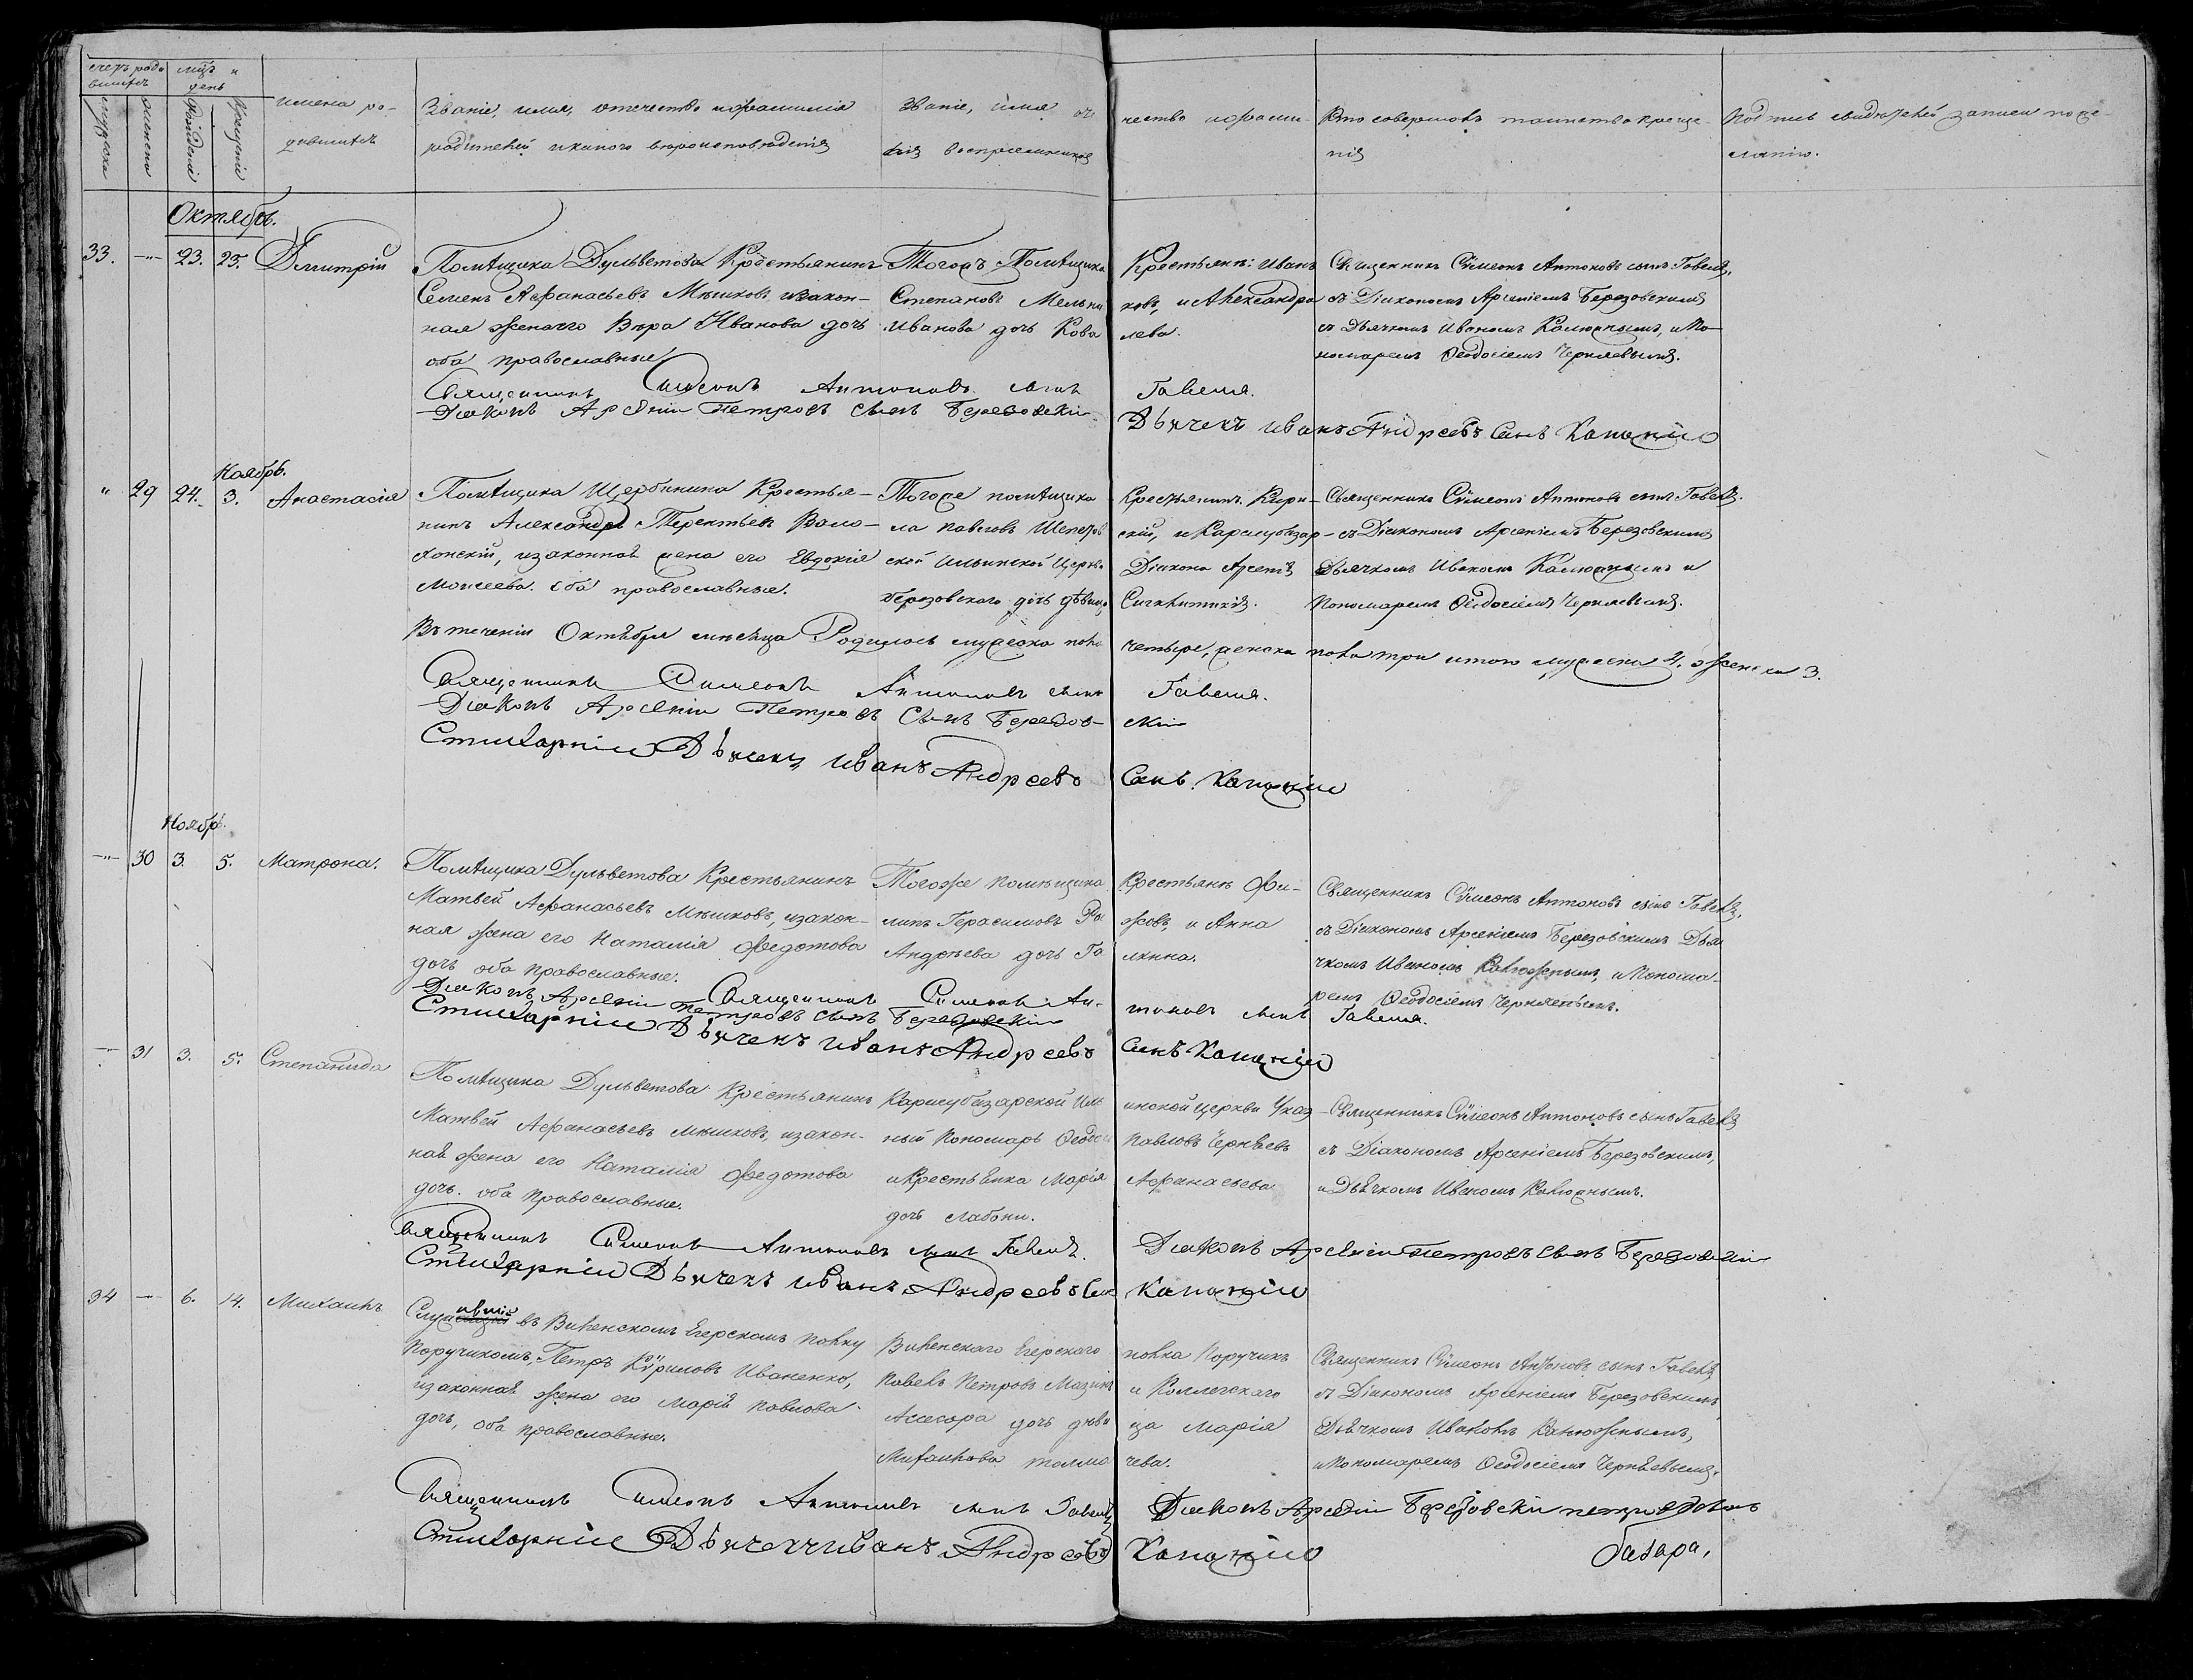 счетъ роди
вшихся
мужеска
женска
мцъ и
день
рожденія
крещенія
имена ро-
дившихся
Званіе, имя, отечество и фамилія
родителей и какого вероисповѣданія
Званіе, имя оте
чество и фами-
лія воспріемниковъ
Кто совершалъ таинство креще-
нія
Подпись свидѣтелей записи по же-
ланію.
Октябрь.
33. — 23. 25. Дмитрій
Помѣщика Дульветова Крестьянинъ
Семенъ Афанасьевъ Мѣшковъ, изакон-
ная жена его Вѣра Иванова дочь
оба православные
Тогожъ Помѣщика Крестьяне: Иванъ
Степановъ Мельни ковъ, и Александра
Иванова дочь Кова лева.
Священникъ Сѵмеонъ Антоновъ сынъ Гавеля,
съ Діакономъ Арсеніемъ Березовскимъ
съ Дьячкомъ Иваномъ Калюжнымъ, и По-
номаремъ Ѳеодосіемъ Черняевымъ.
Священникъ Симеонъ Антоновъ сынъ Гавеля.
Диаконъ Арсений Петровъ сынъ Березовски
Дьячекъ Иванъ Андреевъ Синъ Калюжній
Ноябрь.
" 29 24. 3. Анастасія
Помѣщика Щербинина Крестья-
нинъ Александръ Терентьевъ Воло-
хонскій, изаконная жена его Евдокія
Моисеева. оба православные.
Тогоже помѣщика Крестьянинъ Кири-
ла Павловъ Шепетов скій, и Карасубазар-
ской Ильинской Церкви Діакона Арсенія
Березовского дочь дѣвица Сигклитикія.
Священникъ Сѵмеонъ Антоновъ сынъ Гавеля.
съ Діакономъ Арсеніемъ Березовскимъ
Дьячкомъ Иваномъ Калюжнымъ и
Пономаремъ Ѳеодосіемъ Черняевымъ.
Въ теченіи Октября мѣсяца Родилось мужеска пола четыре, женска пола три итого мужеска 4. женска 3.
Священникъ Симеонъ Антоновъ сынъ Гавеля.
Диаконъ Арсений Петровъ Сынъ Березов- ский
Стихарній Дьячекъ Иванъ Андреевъ Синъ Калюжній
Ноябрь.
—"— 30 3. 5. Матрона.
Помѣщика Дульветова Крестьянинъ
Матвей Афанасьевъ Мѣшковъ, изакон-
ная жена его Наталія Федотова
дочь оба православные.
Тогоже помѣщика Крестьяне Фи-
липъ Герасимовъ жовъ, и Анна
Андреева дочь Га лкина.
Священникъ Сѵмеонъ Антоновъ сынъ Гавеля,
съ Діакономъ Арсеніемъ Березовскимъ Дья
чкомъ Иваномъ Калюжнымъ, и Понома-
ремъ Ѳеодосіемъ Черняевымъ.
Священникъ Симеонъ Ан- тоновъ сынъ Гавеля.
Диаконъ Арсений Петровъ сынъ Березовский
Стихарній Дьячекъ Иванъ Андреевъ Синъ Калюжній
— 31 3. 5. Степанида
Помѣщика Дульветова Крестьянинъ
Матвей Афанасьевъ Мѣшковъ, изакон-
ная жена его Наталія Федотова
дочь. оба православные.
Карасубазарской Иль инской церкви Указ-
ный Пономарь Ѳеодосій Павловъ Черняевъ
и Крестьянка Марія Афанасьева
дочь Слабони.
Священникъ Сѵмеонъ Антоновъ сынъ Гавеля
съ Діакономъ Арсеніемъ Березовскимъ,
и Дьячкомъ Иваномъ Калюжнымъ.
Священникъ Симеонъ Антоновъ сынъ Гавеля.
Диаконъ Арсений Петровъ сынъ Березовский
Стихарній Дьячекъ Иванъ Андреевъ Синъ Калюжній
34 — 6. 14. Михаилъ
Служившій въ Виленскомъ Егерскомъ полку
Поручикомъ, Петръ Кѵриловъ Иваненко,
изаконная жена его Марія Павлова
дочь, оба православные.
Виленскаго Егерскаго полка Поручикъ
Павелъ Петровъ и Коллегскаго
Ассесора дочь дѣви ца Марія
Михаилова Толма чева.
Священникъ Сѵмеонъ Антоновъ сынъ Гавеля,
съ Діакономъ Арсеніемъ Березовскимъ
Дьячкомъ Иваномъ Калюжнымъ,
и Пономаремъ Ѳеодосіемъ Черняевымъ.
Священникъ Симеонъ Антоновъ сынъ Гавеля
Диаконъ Арсений Березовски
Стихарній Дьячекъ Иванъ Андреевъ Калюжній